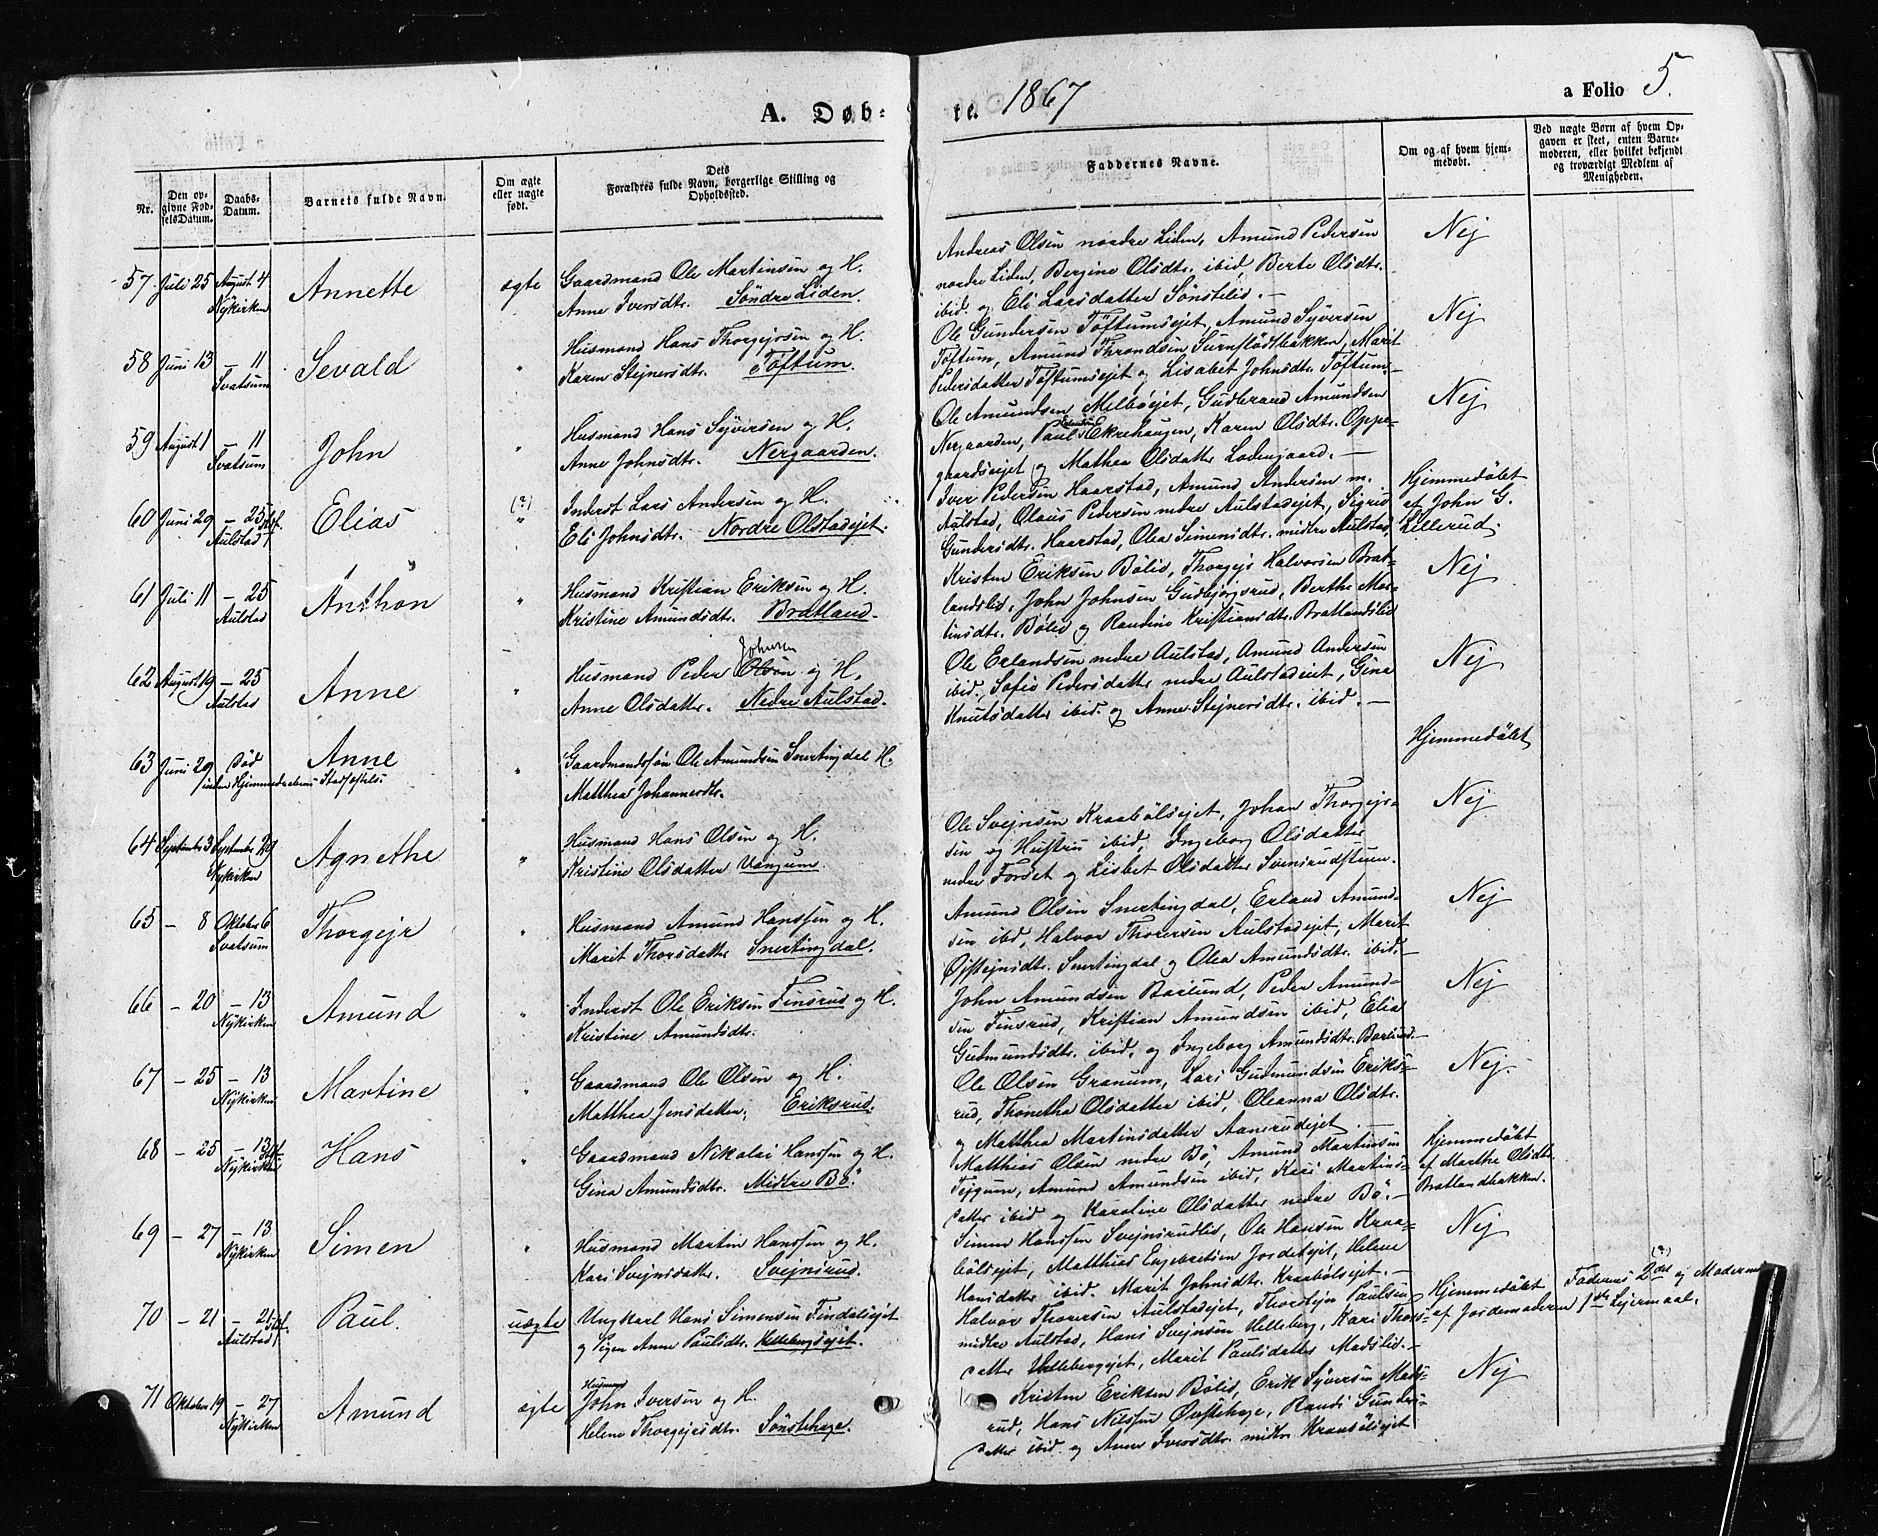 A. Døb-
te. 1867
a Folio 5.
Nr.
Den op-
givne Fød-
selsDatum.
Daabs-
Datum.
Barnets fulde Navn.
Om ægte
eller uægte
født.
Dets
Forældres fulde Navn, borgerlige Stilling og
Opholdssted.
Faddernes Navne.
Om og af hvem hjem-
medøbt.
Ved uægte Børn af hvem Op-
gaven er skeet, enten Barne-
moderen, eller hvilket bekjendt
og troværdigt Medlem af
Menigheden.
57 Juli 25 August 4
Nykirken
Annette
ægte
Gaardmand Ole Martinsen og H.
Anne Iversdtr. Søndre Liden.
Andreas Olsen nordre Liden, Amund Pedersen
nordre Liden, Bergine Olsdtr. ibid, Berte Olsdtr.
ibid. og Eli Larsdatter Sønstelid. —
Nej
58 Juni 13 — 11
Svatsum
Sevald
"
Husmand Hans Thorgejrsen og H.
Karen Stejnersdtr. Töftum.
Ole Gundersen Töftumsejet, Amund Syversen
Töftum, Amund Throndsen Surnflødtbakken, Marit
Pedersdatter Töftumsejet og Lisabet Johnsdtr. Töftum—
Nej
59 August 1 — 11
Svatsum
John
"
Husmand Hans Syversen og H.
Anne Johnsdtr. Nergaarden.
Ole Amundsen Melbøejet, Gudbrand Amundsen
Nergaarden, Paul Økrehaugen, Karen Olsdtr. Oppe-
gaardsejet og Mathea Olsdatter Lodengaard. —
Nej
60 Juni 29 — 25 Stf.
Aulstad
Elias
(?)
"
Inderst Lars Andersen og H.
Eli Johnsdtr. Nordre Olstadejet.
Iver Pedersen Haarstad, Amund Andersen m.
Aulstad, Olaus Pedersen nedre Aulstadejet, Sigrid
Gundersdtr. Haarstad, Olea Simensdtr. midtre Aulstad,
Hjemmedöbt
af John G.
Lillerud.
61 Juli 11 — 25
Aulstad
Anthon
"
Husmand Kristian Eriksen og H.
Kristine Amundsdtr. Bratland.
Kristen Eriksen Bölid, Thorgejr Halvorsen Brat-
landslid, John Johnsen Gudbjorgsrud, Berthe Mar-
tinsdtr. Bölid og Randine Kristiansdtr. Bratlandslid
Nej
62 August 19 — 25
Aulstad
Anne
"
Johnsen
Husmand Peder Olsen og H.
Anne Olsdatter. Nedre Aulstad.
Ole Erlandsen nedre Aulstad, Amund Andersen
ibid., Sofie Pedersdatter nedre Aulstadejet, Gina
Knutsdatter ibid. og Anne Stejnersdtr. ibid. —
Nej
63 Juni 29 Död
inden Hjemmedaabens Stadfæstelse
Anne
"
Gaardmandssön Ole Amundsen Snertingdal H.
Matthea Johannesdtr.
Hjemmedöbt
64 September 3 September 29
Nykirken
Agnethe
"
Husmand Hans Olsen og H.
Kristine Olsdatter Vangum.
Ole Svejnsen Kraabölsejet, Johan Thorgejr-
sen og Hustru ibid, Ingeborg Olsdatter
nedre Forset og Lisbet Olsdatter Svensrudstuen.
Nej
65 — 8 Oktober 6
Svatsum
Thorgejr
"
Husmand Amund Hanssen og H.
Marit Thorsdatter Snertingdal.
Amund Olsen Snertingdal, Erland Amund-
sen ibd, Halvor Thorersen Aulstadejet, Marit
Øjstejnsdtr. Snertingdal og Olea Amundsdtr. ibid. —
Nej
66 — 20 — 13
Nykirken
Amund
"
Inderst Ole Eriksen Finsrud og H.
Kristine Amundsdtr.
John Amundsen Barlund, Peder Amund-
sen Finsrud, Kristian Amundsen ibid, Elia
Gudmundsdtr. ibid, og Ingeborg Amundsdtr. Barlund. —
Nej
67 — 25 — 13
Nykirken
Martine
"
Gaardmand Ole Olsen og H.
Matthea Jensdatter. Eriksrud.
Ole Olsen Granum, Lars Gudmundsen Eriks-
rud, Thonetha Olsdatter ibid, Oleanna Olsdtr.
og Matthea Martinsdatter Aanerudejet. —
Nej.
68 — 25 — 13 Stf.
Nykirken
Hans
"
Gaardmand Nikolai Hanssen og H.
Gina Amundsdtr. Midtre Bö.
Matthias Olsen nedre Bö, Amund Martinsen
Tejgum, Amund Amundsen ibid, Kari Martins-
datter ibid og Karoline Olsdatter nedre Bö. —
Hjemmedöbt
af Marthe Olsdtr.
Bratlandbakken.
69 — 27 — 13
Nykirken
Simen
"
Husmand Martin Hanssen og H.
Kari Svejnsdatter. Svejnsrud.
Simen Hanssen Svejnsrudlid, Ole Hansen Kraa-
bölsejet, Matthias Engebretsen Jordetejet, Helene
Hansdatter ibid. Marit Johnsdtr. Kraabölsejet. —
Nej
70 — 21 — 26 Stf.
Aulstad
Paul.
uægte
Ungkarl Hans Simensen Findalsejet
og Pigen Anne Paulsdtr. Vellebergsejet.
Halvor Thorersen Aulstadejet, Thorstejn Paulsen
midtre Aulstad, Hans Svejnsen Velleberg, Kari Thors-
datter Vellebergejet, Marit Paulsdatter Madslid. —
Hjemmedöbt
af Jordemoderen
(?)
Faderens 2det og Moderens
1ste Lejermaal.
71 Oktober 19 — 27
Nykirken
Amund
ægte
Husmand
John Iversen og H.
Helene Thorgejrsdtr. Sönstehage.
Kristen Eriksen Bölid, Erik Syversen Mads-
rud, Hans Nilssen Øvstehage, Randi Gunders-
datter ibid. og Anne Iversdtr. midtre Kraabölsejet
Nej